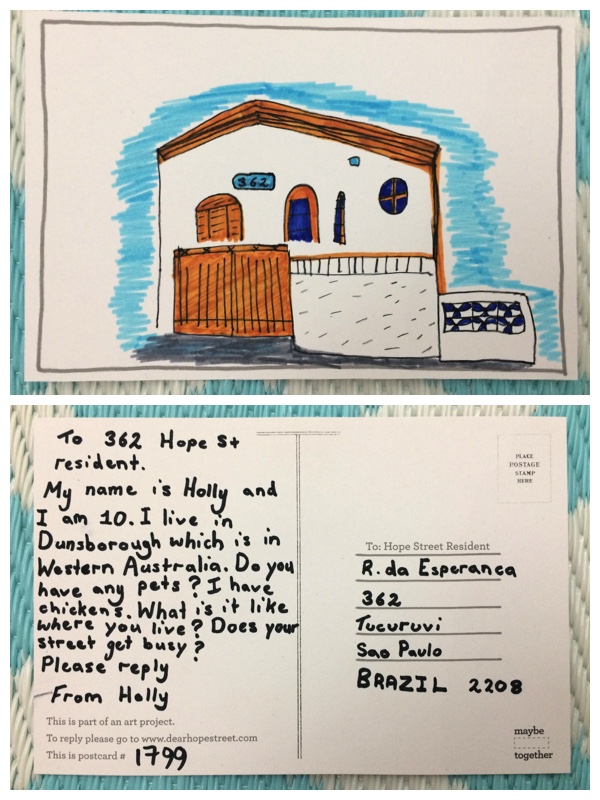 362
To 362 Hope St
resident.
My name is Holly and
I am 10. I live in
Dunsborough which is in
Western Australia. Do you
have any pets? I have
chickens. What is it like
where you live? Does your
street get busy?
Please reply
From Holly
This is part of an art project.
To reply please go to www.dearhopestreet.com
This is postcard # 1799
PLACE
POSTAGE
STAMP
HERE
To: Hope Street Resident
R. da Esperanca
362
Tucuruvi
Sao Paulo
BRAZIL 2208
maybe
together